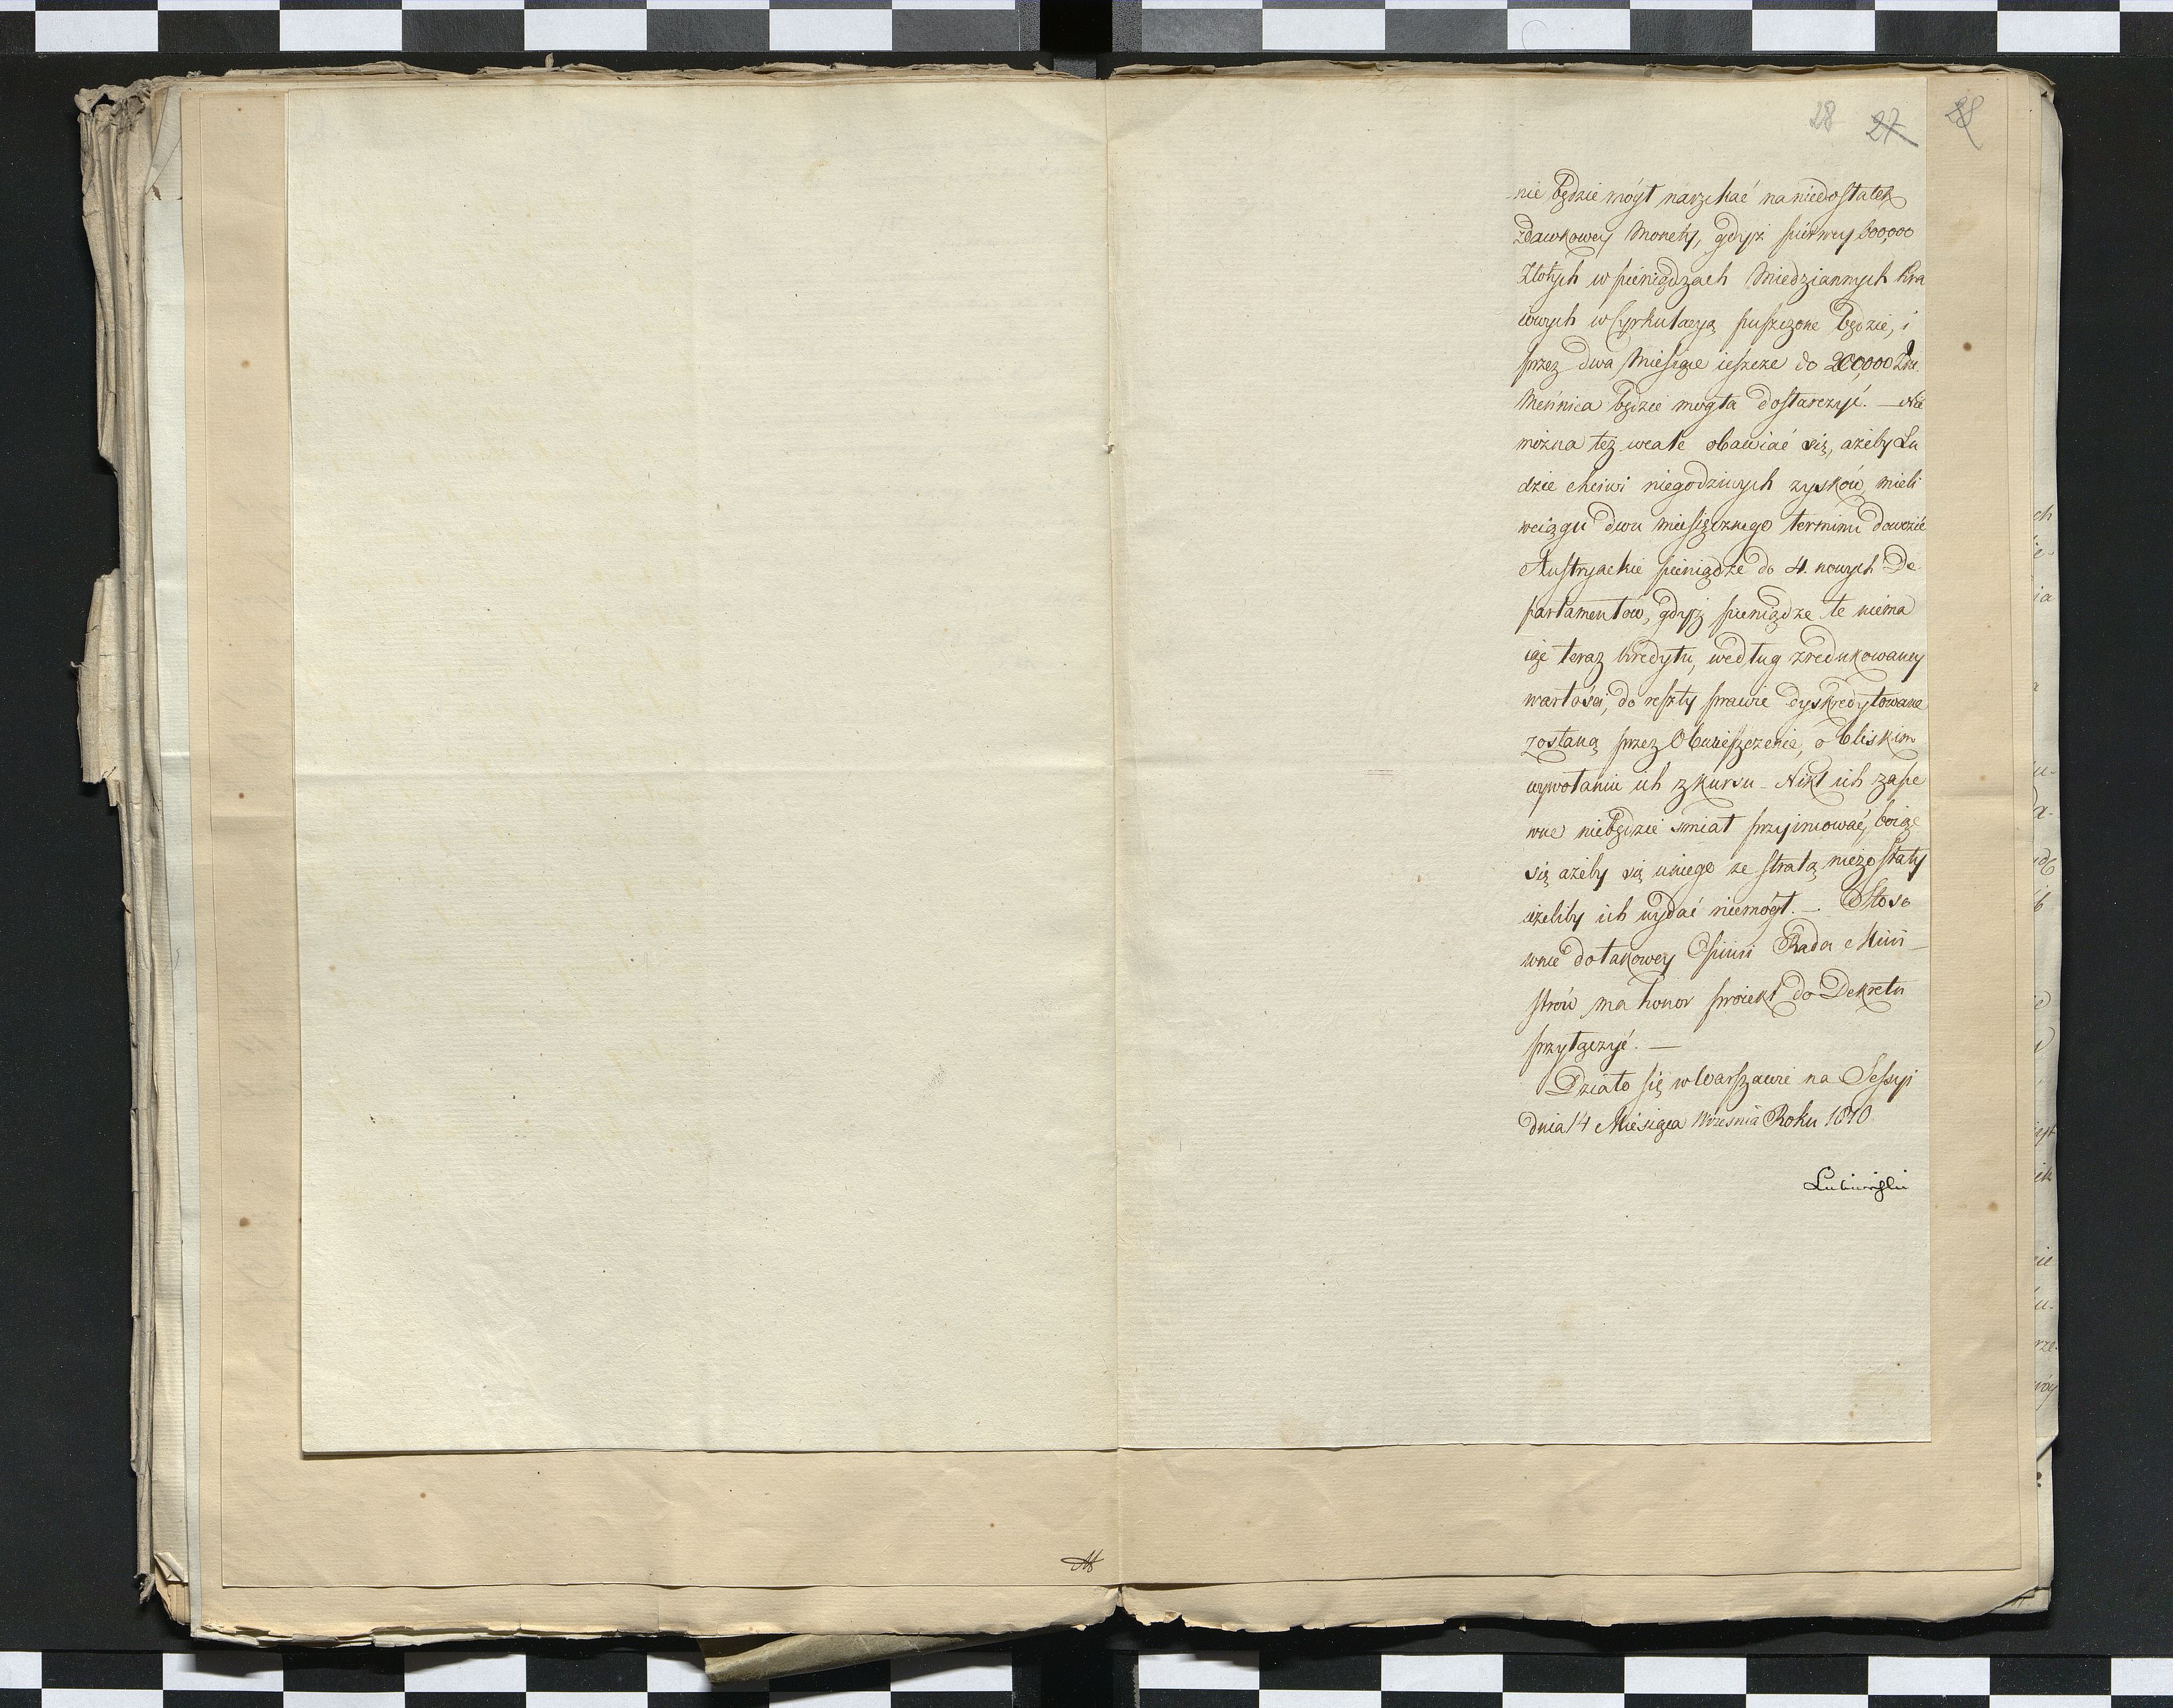 28 27 28
nie będzie mógł narzekać na niedostatek
zdawkowey Monety, gdyż pierwey 600,000
Złotych w pieniądzach Miedziannych Kra
iowych w Cyrkulacyą puszczone będzie, i
przez dwa Miesiące ieszcze do 200,000
Mennica będzie mogła dostarczyć. — Nie
można też wcale obawiać się, ażeby Lu
dzie chciwi niegodziwych zysków, mieli
wciągu dwu miesięcznego terminu dowozić
Austryackie pieniądze do 4. nowych De
partamentów, gdyż pieniądze te niema
iąc teraz kredytu, według zredukowaney
wartości, do reszty prawie dyskredytowane
zostaną przez Obwieszczenie, o bliskim
wywołaniu ich z kursu – Nikt ich zape
wne niebędzie śmiał przyjmować, boiąc
się ażeby się uniego ze stratą niezostały
ieżeliby ich wydać niemógł. — Stoso
wnie do takowey Opinii Rada Mini–
strów ma honor proiekt do Dekretu
przyłączyć. —
Działo się w Warszawie na Sessyi
dnia 14 Miesiąca Września Roku 1810
Lubieński